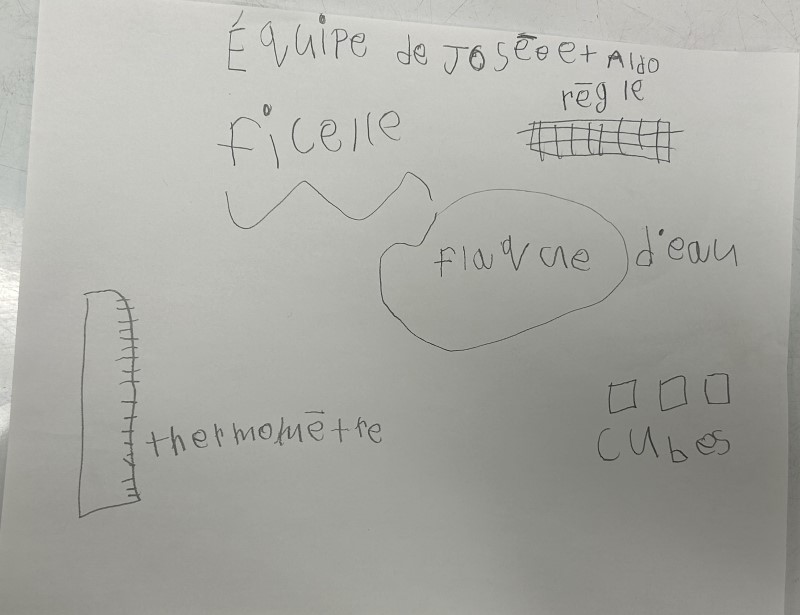 Équipe de Joséoe et Aldo
règle
ficelle
flaque d'eau
thermomètre
cubes